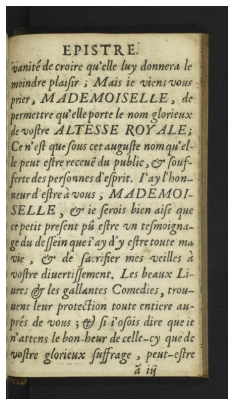 EPISTRE.
vanité de croire qu'elle luy donnera le
moindre plaisir ; Mais ie viens vous
prier, MADEMOISELLE, de
permettre qu'elle porte le nom glorieux
de vostre ALTESSE ROYALE;
Ce n'est que sous cet auguste nom qu'el-
le peut estre receuë du public, & souf-
ferte des personnes d'esprit. I'ay l'hon-
neur d'estre à vous, MADEMOI-
SELLE, & ie serois bien aise que
ce petit present pû estre vn tesmoigna-
ge du dessein que i'ay d'y estre toute ma
vie, & de sacrifier mes veilles à
vostre diuertissement. Les beaux Li-
ures & les gallantes Comedies, trou-
uent leur protection toute entiere au-
prés de vous ; & si i'osois dire que ie
n'attens le bon-heur de celle-cy que de
vostre glorieux suffrage, peut-estre
ã iij